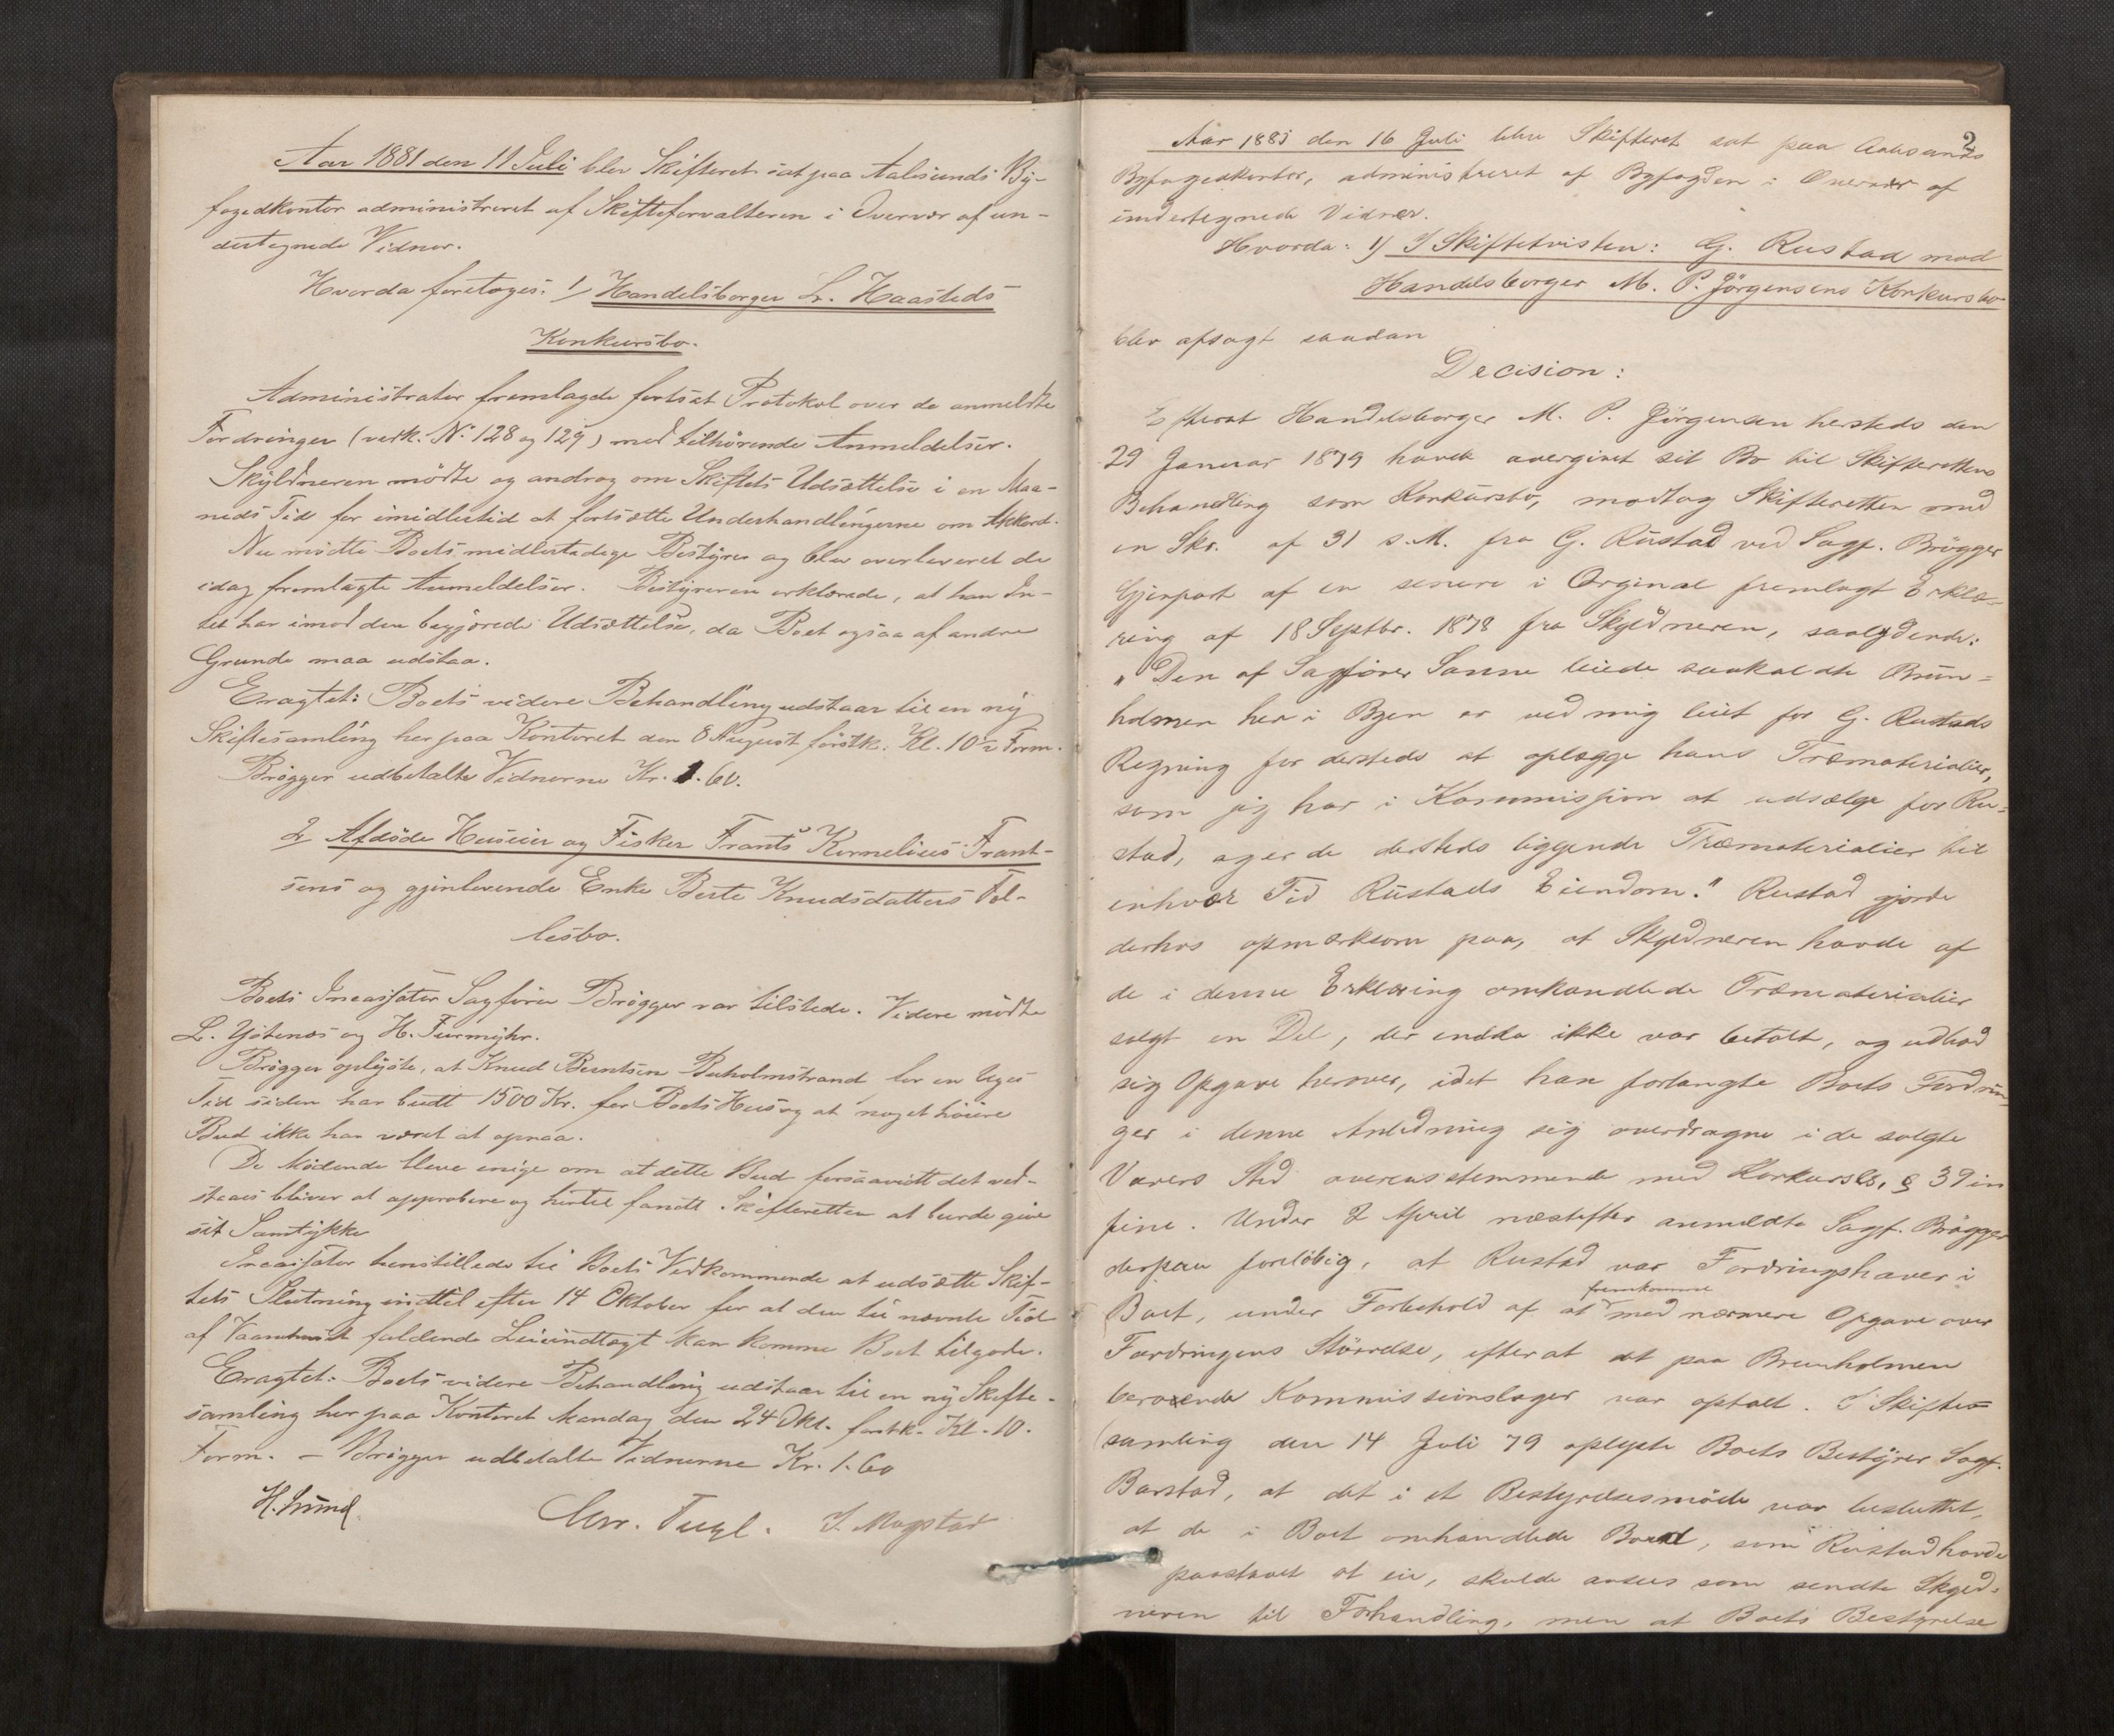 Aar 1881 den 11 Juli blev Skifteret sat paa Aalesunds By-
fogedkontor administreret af Skifteforvalteren i Overvær af un-
dertegnede Vidner.
Hvorda foretoges: 1/ Handelsborger L. Haasteds
Konkursbo.
Administrator fremlagde fortsat Protokol over de anmeldte
Fordringer (verk. No 128 og 129) med tilhørende Anmeldelser.
Skyldneren mödte og androg om Skiftets Udsættelse i en Maa-
neds Tid for imidlertid at fortsætte Underhandlingerne om Akkord.
Nu mödte Boets midlertidige Bestyrer og blev overleveret de
idag fremlagte Anmeldelser. Bestyreren erklærede, at han In-
tet har imod den begjærede Udsættelse, da Boet ogsaa af andre
Grunde maa udstaa.
Eragtet: Boets videre Behandling udstaar til en ny
Skiftesamling her paa Kontoret den 8 August förstk. Kl. 10½ Form.
Brögger udbetalte Vidnerne Kr. 1.60.
2 Afdöde Huseier og Fisker Frants Kornelius Frant-
sens og gjenlevende Enke Berte Knudsdatters Fæl-
lesbo.
Boets Incassator Sagförer Brögger var tilstede. Videre mödte
L. Ystenæs og H. Furmyhr.
Brögger oplyste, at Knud Berntsen Buholmstrand for en Uges
Tid siden har budt 1500 Kr. for Boets Hus og at noget höiere
Bud ikke har været at opnaa.
De Mödende bleve enige om at dette Bud forsaavidt det ved-
staaes bliver at approbere og hertil fandt Skifteretten at burde give
sit Samtykke
Incassator henstillede til Boets Vedkommende at udsætte Skif-
tets Slutning indtil efter 14 Oktober for at den til nævnte Tid
af Vaanhuset faldende Leieindtægt kan komme Boet tilgode.
Eragtet: Boets videre Behandling udstaar til en ny Skifte-
samling her paa Kontoret Mandag den 24 Okt. förstk. Kl. 10.
Form. – Brögger udbetalte Vidnerne Kr. 1.60
H. Lund. Chr. Fugl. I. Magstad
2
Aar 1881 den 16 Juli blev Skifteret sat paa Aalesunds
Byfogedkontor, administreret af Byfogden i Overvær af
undertegnede Vidner.
Hvorda: 1) I Skiftetvisten: G. Rustad mod
Handelsborger M. P. Jörgensens Konkursbo
blev afsagt saadan
Decision:
Efterat Handelsborger M. P. Jörgensen hersteds den
29 Januar 1879 havde overgivet sit Bo til Skifterettens
Behandling som Konkursbo, modtog Skifteretten med
en Skr. af 31 s. M. fra G. Rustad ved Sagf. Brögger
Gjenpart af en senere i Orginal fremlagt Erklæ-
ring af 18 Septbr. 1878 fra Skyldneren, saalydende:
"Den af Sagförer Sanne leiede saakaldte Brun-
holmen her i Byen er ved mig leiet for G. Rustads
Regning for dersteds at oplægge hans Træmaterialier,
som jeg har i Kommission at udsælge for Ru-
stad, og er de dersteds liggende Træmaterialier til
enhver Tid Rustads Eiendom." Rustad gjorde
derhos opmærksom paa, at Skyldneren havde af
de i denne Erklæring omhandlede Træmaterialier
solgt en Del, der endda ikke var betalt, og udbad
sig Opgave herover, idet han forlangte Boets Fordrin-
ger i denne Anledning sig overdragne i de solgte
Varers Sted overensstemmende med Konkursl. § 39 in
fine. Under 2 April næstefter anmeldte Sagf. Brögger
derpaa foreløbig, at Rustad var Fordringshaver i
Boet, under Forbehold af at fremkomme med nærmere Opgave over
Fordringens Störrelse, efterat det paa Brunholmen
beroende Kommissionslager var optalt. I Skifte-
samling den 14 Juli 79 oplyste Boets Bestyrer Sagf.
Barstad, at det i et Bestyrelsesmöde var besluttet,
at de i Boet omhandlede Bord, som Rustad havde
paastaaet at eie, skulde ansees som sendte Skyld-
neren til Forhandling, men at Boets Bestyrelse